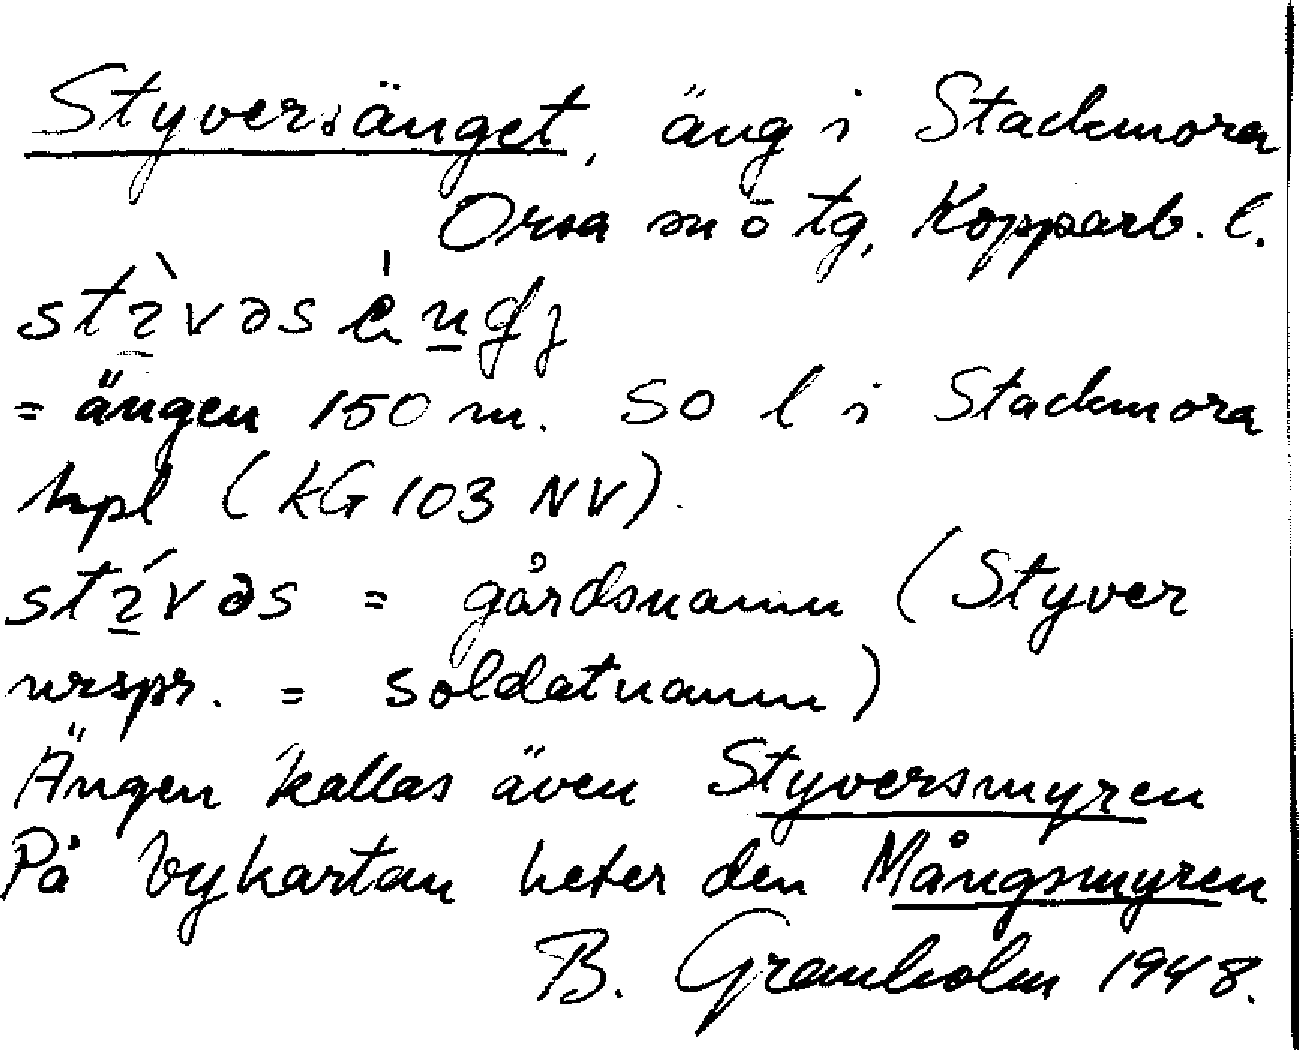 Styversänget, äng i Stackmora
Orsa sn o tg, Kopparb. l.
= ängen 150 m. SO l i Stackmora
hpl (kG 103 NV).
= gårdsnamn (Styver
urspr. = soldatnamn)
Ängen kallas även Styversmyren
På bykartan heter den Mångsmyren
B. Granholm 1948.